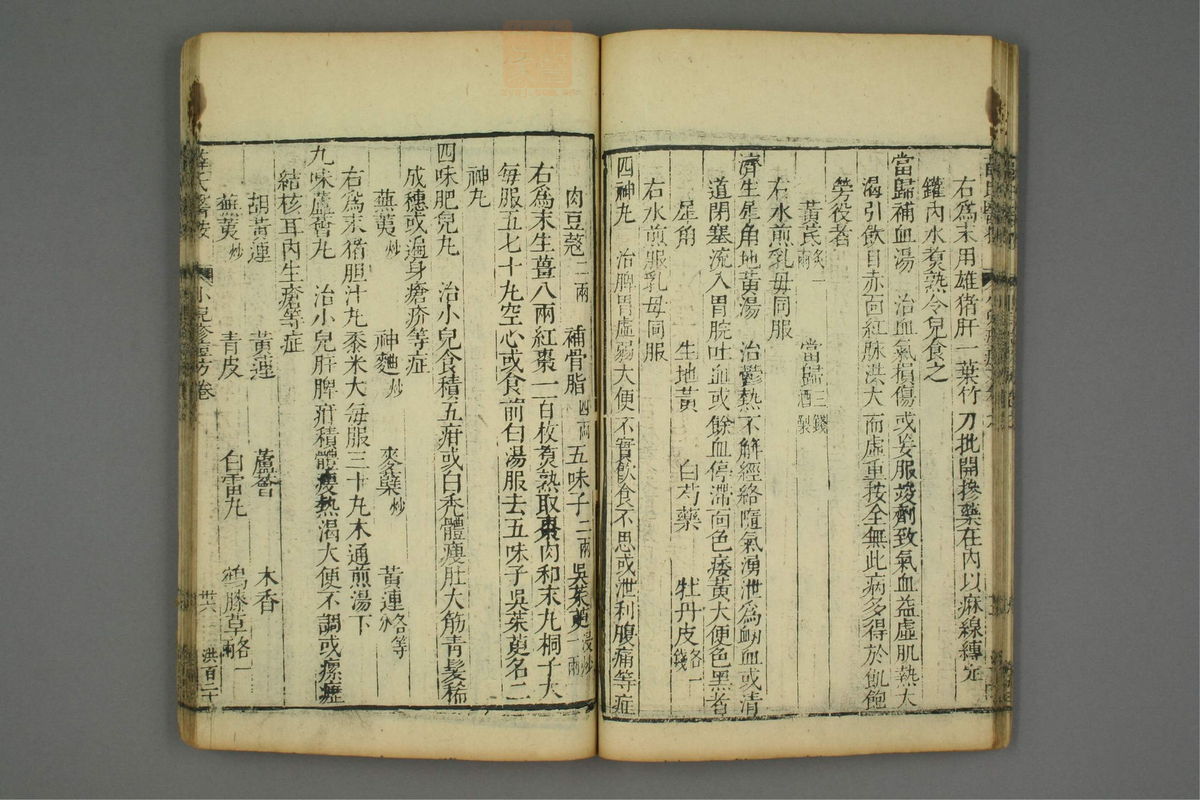 右爲末用雄猪肝一葉竹刀批開摻藥在内以麻線縛定
鑵内水煑熟令兒食之
當歸補血湯　治血氣損傷或妄服峻劑致氣血益虛肌熱大
渴引飲目赤面紅脉洪大而虛重按全無此病多得於飢飽
勞役者
黃芪炙一兩　當歸三錢酒製
右水煎乳母同服
濟生犀角地黃湯　治鬱熱不解經絡隨氣湧泄爲衂血或清
道閉塞流入胃脘吐血或餘血停滯面色痿黃大便色黑者
犀角　生地黃　白芍藥　牡丹皮各一錢
右水煎服乳母同服
四神丸　治脾胃虛弱大便不實飲食不思或泄利腹痛等症
肉豆蔻二兩　補骨脂四兩　五味子二兩　吳茱萸浸炒一兩
右爲末生薑八兩紅棗一百枚煑熟取棗肉和末丸桐子大
每服五七十丸空心或食前白湯服去五味子吳茱萸名二
神丸
四味肥兒丸　治小兒食積五疳或白禿體瘦肚大筋青髮稀
成穗或遍身瘡疥等症
蕪荑炒　神麯炒　麥糵炒　黃連各等分
右爲末猪胆汁丸黍米大每服三十丸木通煎湯下
九味蘆薈丸　治小兒肝脾疳積體瘦熱渴大便不調或瘰癧
結核耳内生瘡等症
胡黃連　黃連　蘆薈　木香
蕪荑炒　青皮　白雷丸　鶴膝草各一兩
薛氏醫按　小兒疹痘方卷　洪百二十